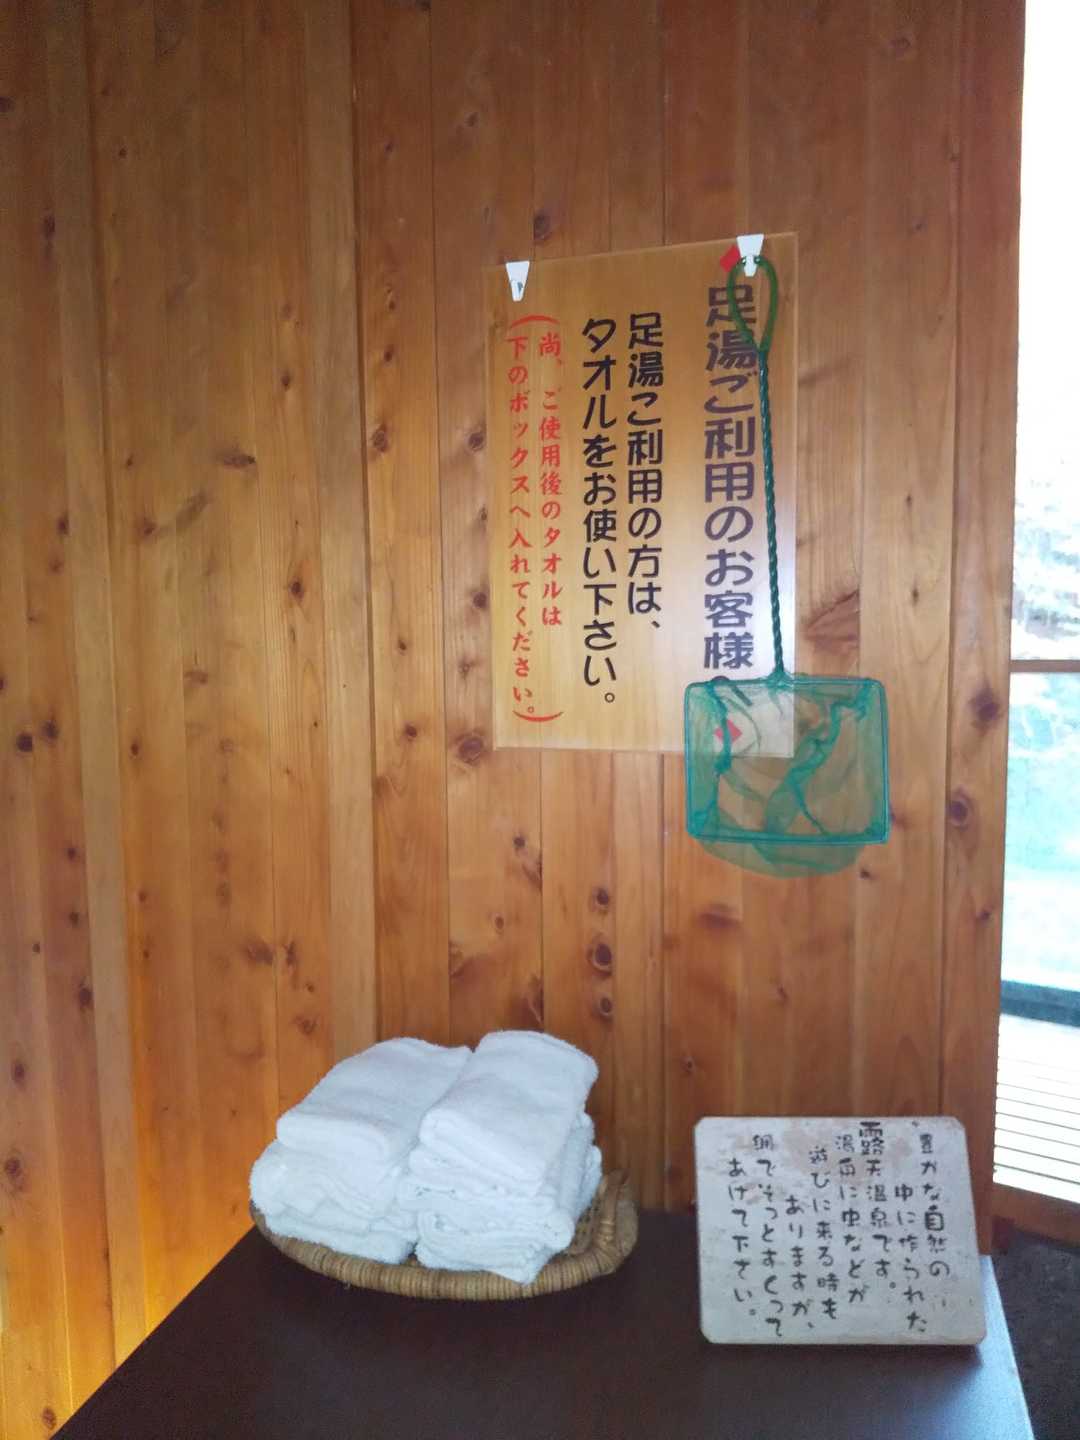 足湯ご利用のお客様へ
足湯ご利用の方は、
タオルをお使い下さい。
(尚、ご使用後のタオルは
下のボックスへ入れてください。)
豊かな自然の
中に作られた
露天温泉です。
湯舟に虫などが
遊びに来る時も
ありますが、
網でそっとすくって
あげて下さい。